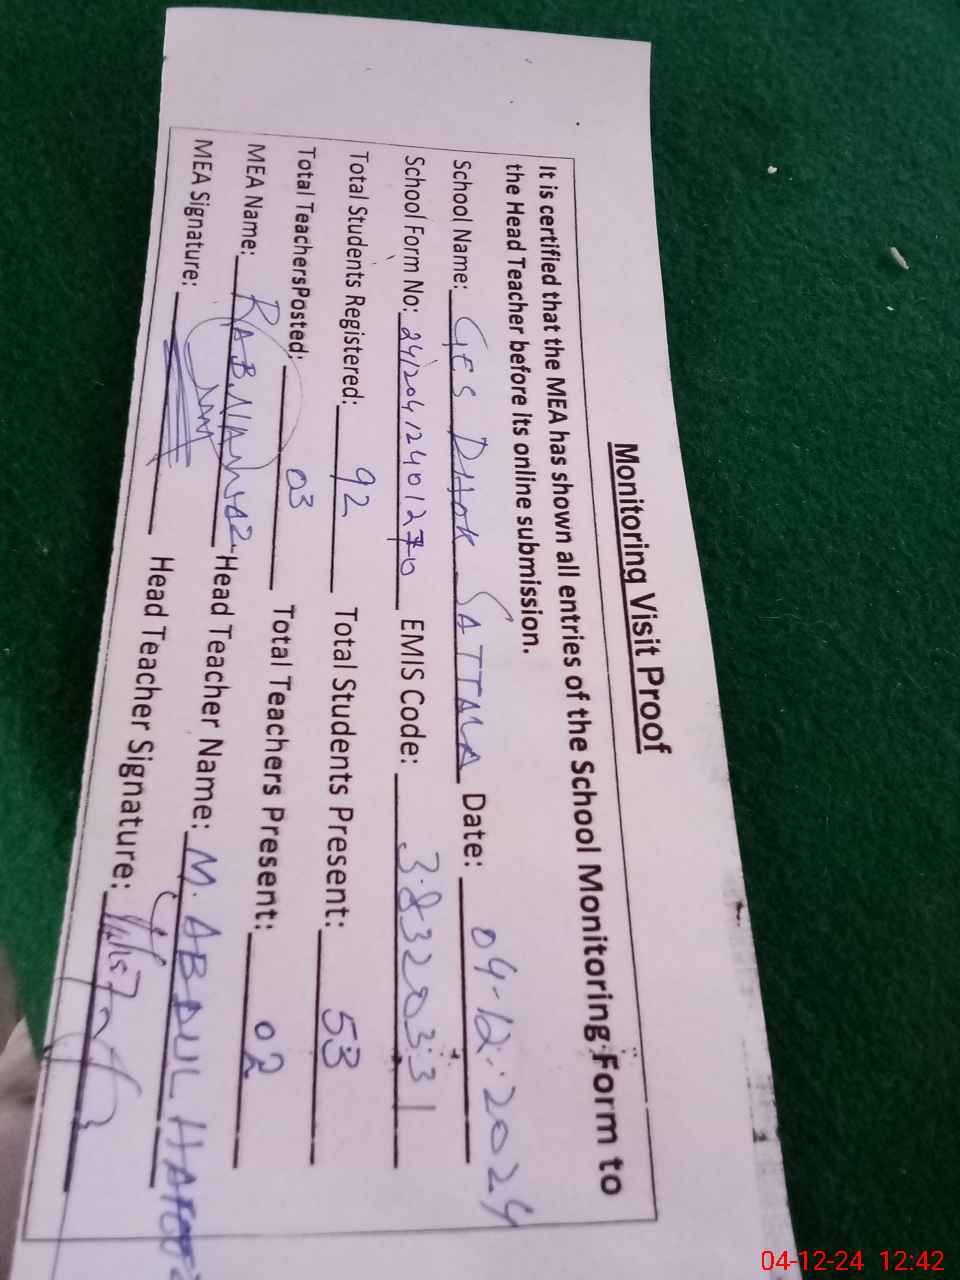 Monitoring Visit Proof
It is certified that the MEA has shown all entries of the School Monitoring Form to
the Head Teacher before its online submission.
School Name: GES DHOK SATTALA Date: 04-12-2024
School Form No: 24/204/2401270 EMIS Code: 38320331
Total Students Registered: 92 Total Students Present: 53
Total TeachersPosted: 03 Total Teachers Present: 02
MEA Name: RAB NAWAZ Head Teacher Name: M. ABDUL HAFOOZ
MEA Signature: Head Teacher Signature:
04-12-24 12:42